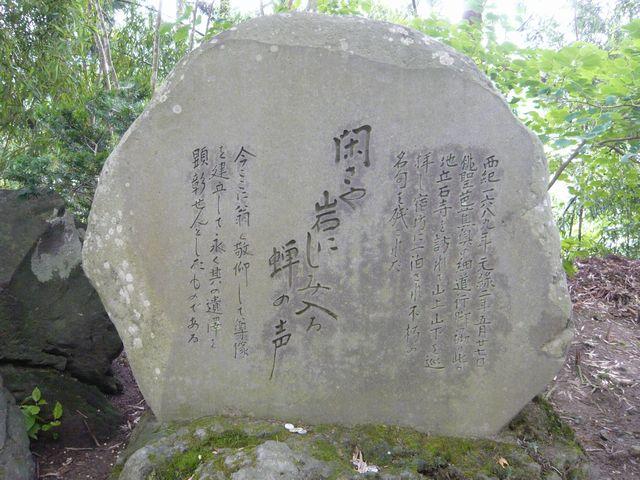 西紀一六八九年元禄二年五月廿七日
俳聖芭蕉奥の細道行脚の砌此の
地立石寺を訪れ山上山下を巡
拝し宿坊に一泊され不朽の
名句を残された
閑さや
岩にしみ入る
蝉の声
今ここに翁を敬仰して蝉塚
を建立して永く其の遺澤を
顕彰せんとしたものである